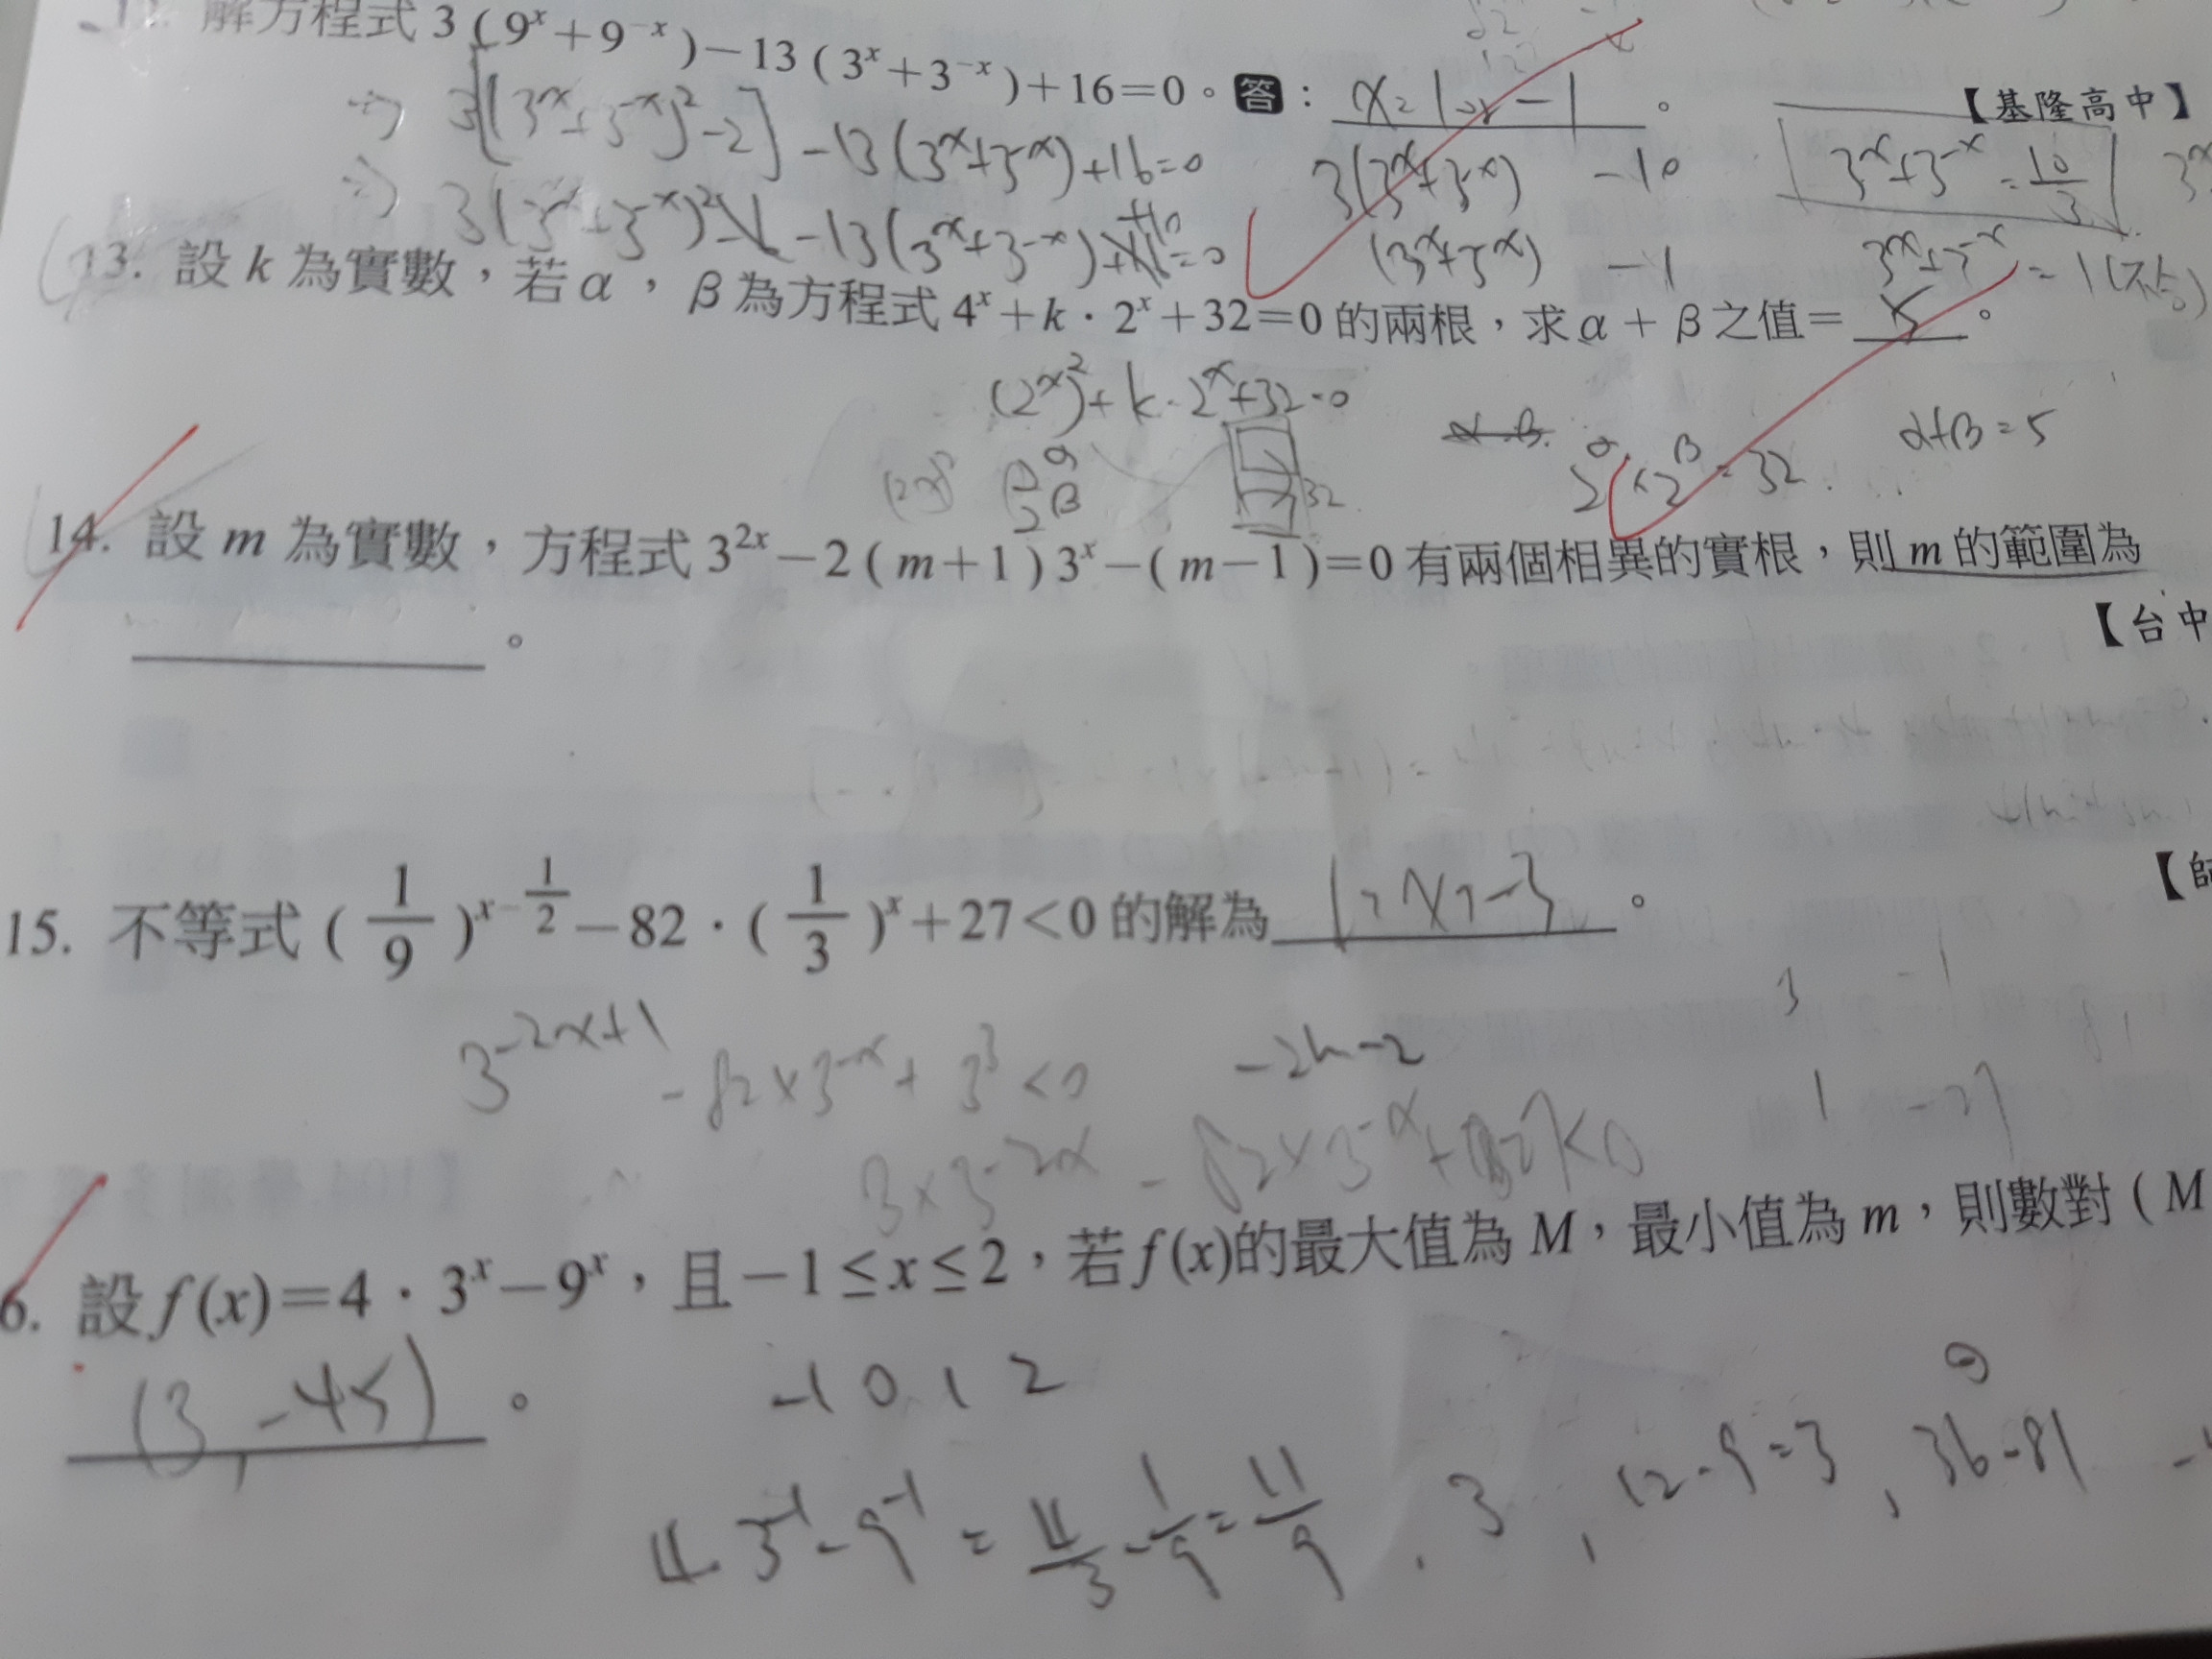 解方程式 3(9ˣ+9⁻ˣ)−13(3ˣ+3⁻ˣ)+16=0。答:x=1or−1。【基隆高中】
⇒ 3[(3ˣ+3⁻ˣ)²−2]−13(3ˣ+3⁻ˣ)+16=0
3(3ˣ+3⁻ˣ) −10
3ˣ+3⁻ˣ=10/3
(3ˣ+3⁻ˣ) −1
3ˣ+3⁻ˣ=1(不合)
13. 設 k 為實數,若α,β為方程式 4ˣ+k·2ˣ+32=0 的兩根,求α+β之值=5。
(2ˣ)²+k·2ˣ+32=0
2^α×2^β=32
α+β=5
14. 設 m 為實數,方程式 3²ˣ−2(m+1)3ˣ−(m−1)=0 有兩個相異的實根,則 m 的範圍為
。
【台中
15. 不等式(1/9)^(x−1/2)−82·(1/3)ˣ+27<0 的解為1>x>−3。
【師
3 −1
3^(−2x+1)−82×3⁻ˣ+3³<0
1 −27
3×3⁻²ˣ−82×3⁻ˣ+27<0
6. 設 f(x)=4·3ˣ−9ˣ,且−1≤x≤2,若 f(x)的最大值為 M,最小值為 m,則數對(M
(3,−45)。
−1 0 1 2
4·3⁻¹−9⁻¹=4/3−1/9=11/9, 3, 12−9=3, 36−81